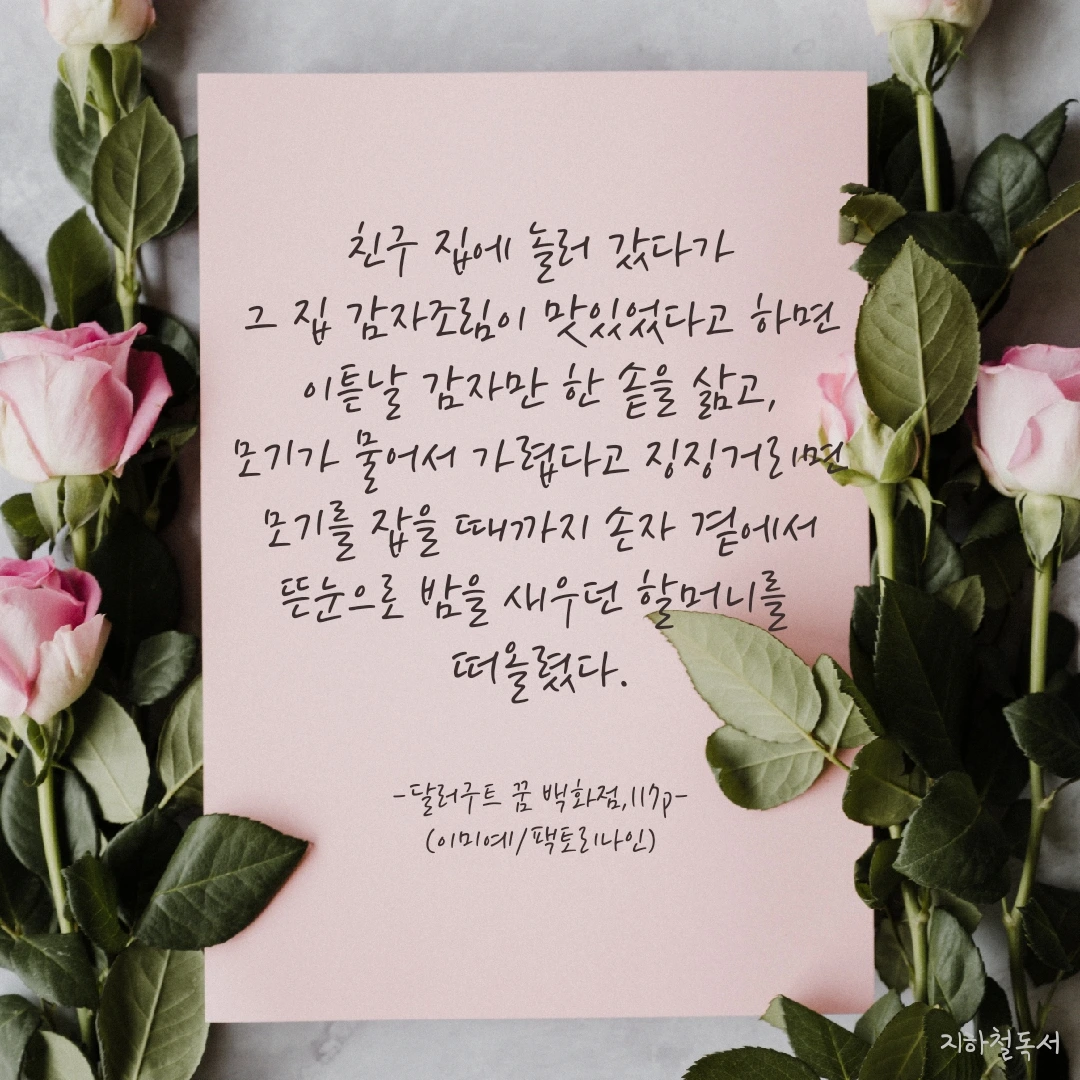 친구 집에 놀러 갔다가
그 집 감자조림이 맛있었다고 하면
이튿날 감자만 한 솥을 삶고,
모기가 물어서 가렵다고 징징거리면
모기를 잡을 때까지 손자 곁에서
뜬눈으로 밤을 새우던 할머니를
떠올렸다.
-달러구트 꿈 백화점,117p-
(이미예/팩토리나인)
지하철독서